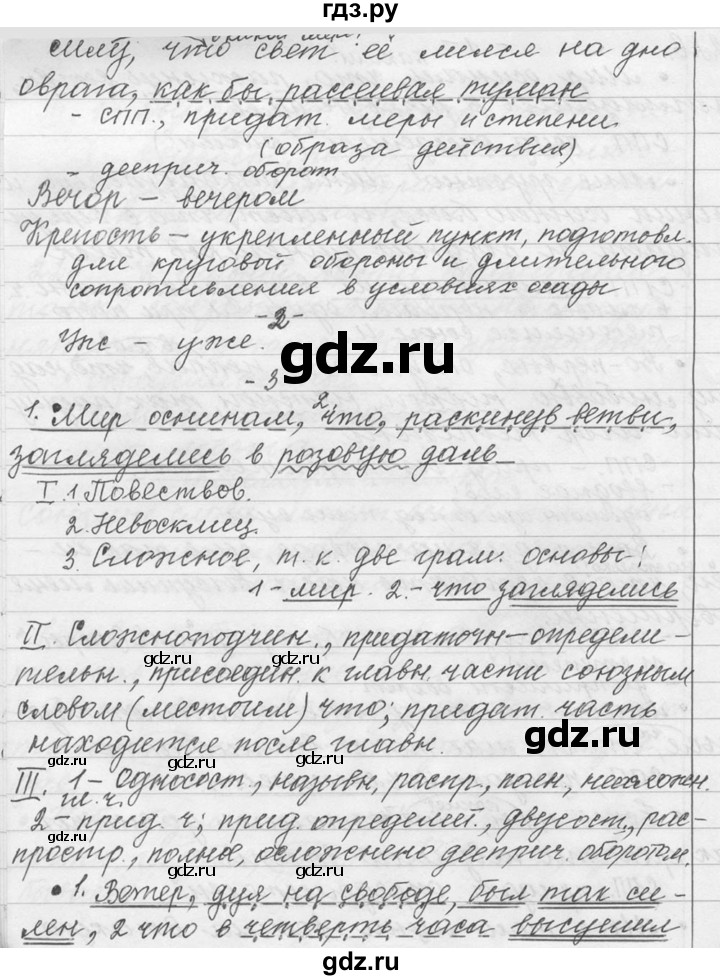 гдз.ру
(в какой мере?)
силу, что свет её лился на дно
оврага, как бы рассеивая туман
- спп., придат. меры и степени.
(образа действия)
- дееприч. оборот
Вечор – вечером
Крепость – укрепленный пункт, подготовл.
для круговой обороны и длительного
сопротивления в условиях осады
-2-
Уж – уже.
gdz.ru
-3
1. Мир осинам, 2 что, раскинув ветви,
загляделись в розовую даль
I 1 Повествов.
2. Невосклиц.
3. Сложное, т. к. две грам. основы:
1 - мир. 2. - что загляделись
gdz.ru
II Сложноподчин., придаточн-определи-
тельн., присоедин. к главн. части союзным
словом (местоим) что, придат. часть
находится после главн.
III. 1 - односост., назывн, распр., полн., неосложн.
гл. ч.
2 - прид. ч; прид. определ., двусост., рас-
простр., полное, осложнено дееприч. оборотом.
• 1. Ветер, дуя на свободе, был так си-
лен, 2 что в четверть часа высушил
gdz.ru